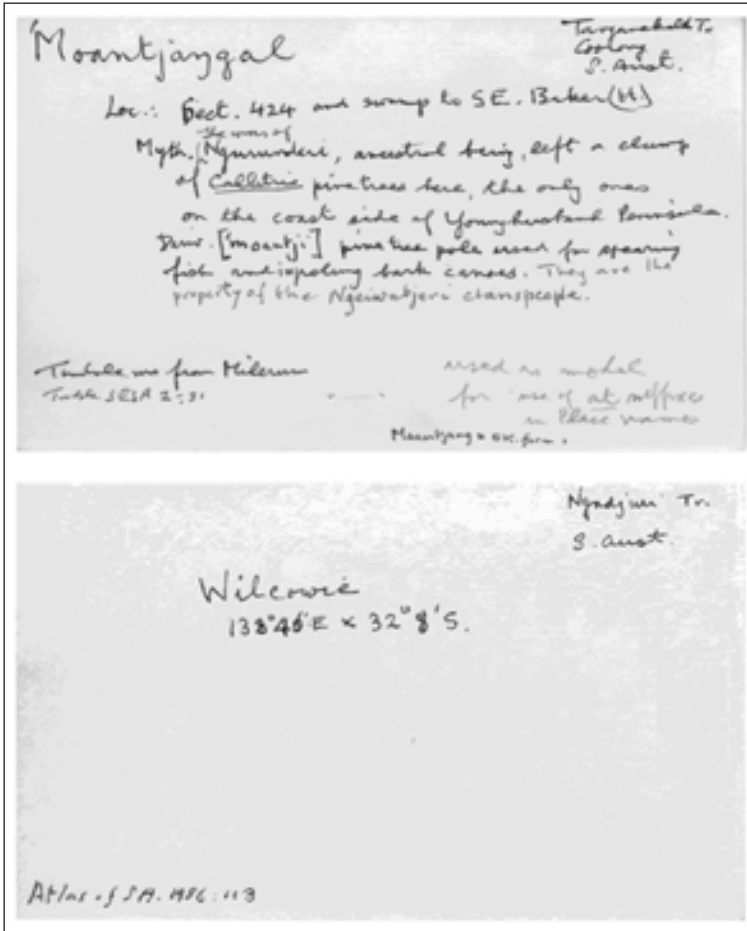 'Moantjaŋgal
Tanganekald Tr.
Coorong
S. Aust.
Loc.: Sect. 424 and swamp to SE. Baker (H.)
the sons of
Myth. Ngurunderi, ancestral being, left a clump
of Callitris pine trees here, the only ones
on the coast side of Younghusband Peninsula.
Deriv. ['moantji] pine tree pole used for spearing
fish and in poling bark canoes. They are the
property of the Ngeiwatjeri clanspeople.
Tindale ms from Milerum
Tindale SESA 2:31
used as model
for use of al suffixes
in Place names
Moantjang is OK form.
Ngadjuri Tr.
S. Aust.
Wilcowie
138°46'E x 32°8'S.
Atlas of SA. 1986:113